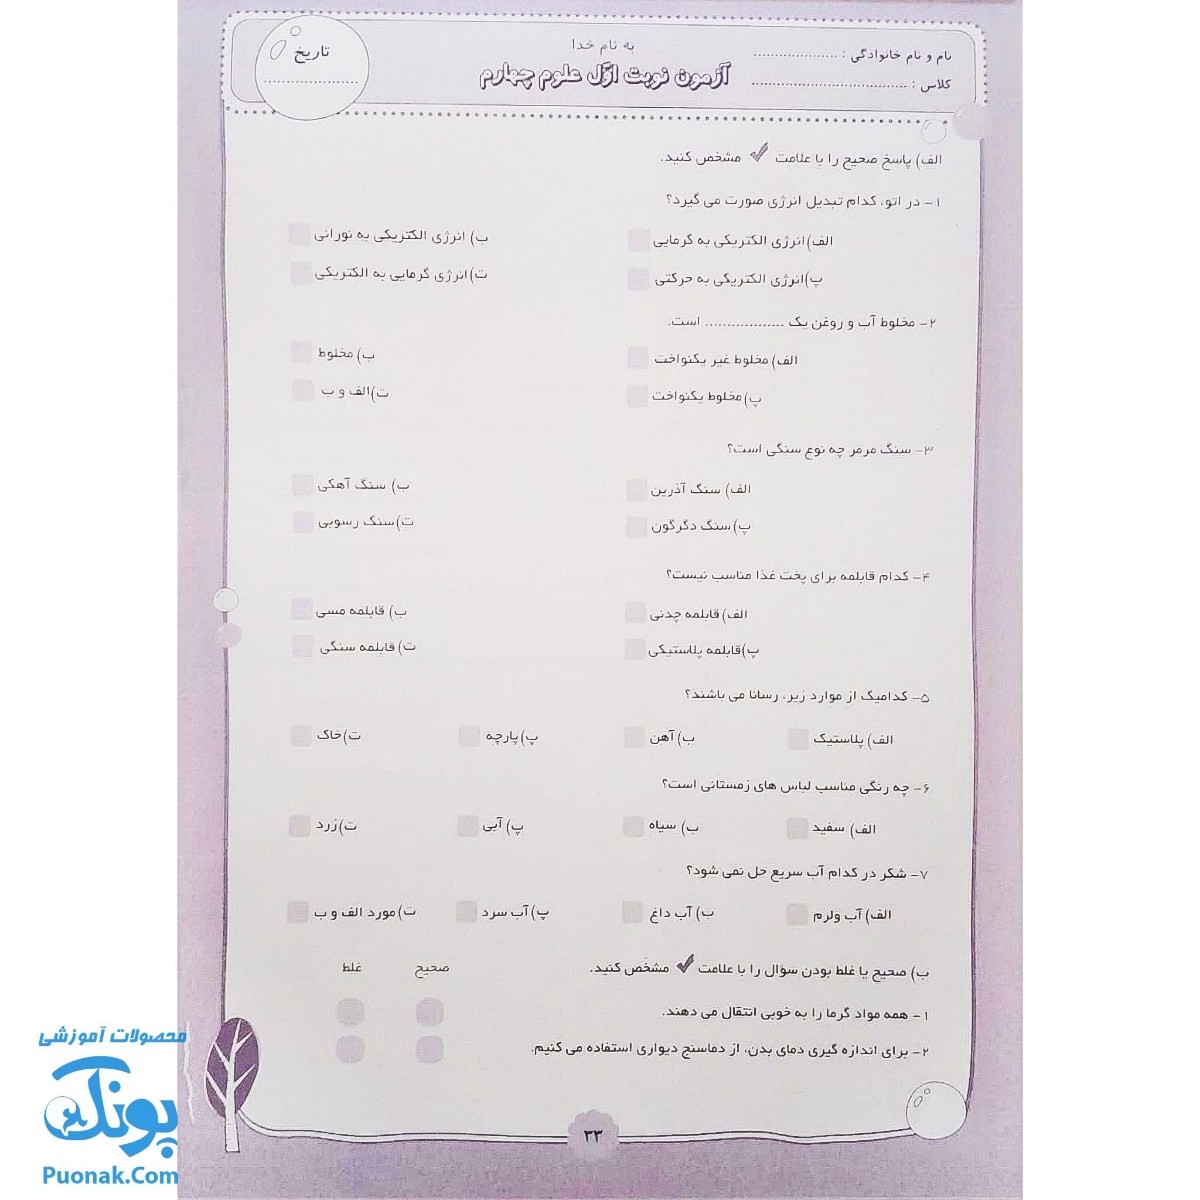 به نام خدا
نام و نام خانوادگی : .....................
آزمون نوبت اوّل علوم چهارم
کلاس : ......................................
تاریخ
......................
الف) پاسخ صحیح را با علامت ✓ مشخص کنید.
۱- در اتو، کدام تبدیل انرژی صورت می گیرد؟
الف)انرژی الکتریکی به گرمایی ب) انرژی الکتریکی به نورانی
پ)انرژی الکتریکی به حرکتی ت)انرژی گرمایی به الکتریکی
۲- مخلوط آب و روغن یک .................. است.
الف) مخلوط غیر یکنواخت ب) مخلوط
پ)مخلوط یکنواخت ت)الف و ب
۳- سنگ مرمر چه نوع سنگی است؟
الف) سنگ آذرین ب) سنگ آهکی
پ)سنگ دگرگون ت)سنگ رسوبی
۴- کدام قابلمه برای پخت غذا مناسب نیست؟
الف)قابلمه چدنی ب) قابلمه مسی
پ)قابلمه پلاستیکی ت)قابلمه سنگی
۵- کدامیک از موارد زیر، رسانا می باشند؟
الف) پلاستیک ب)آهن پ)پارچه ت)خاک
۶- چه رنگی مناسب لباس های زمستانی است؟
الف) سفید ب) سیاه پ)آبی ت)زرد
۷- شکر در کدام آب سریع حل نمی شود؟
الف)آب ولرم ب)آب داغ پ)آب سرد ت)مورد الف و ب
ب) صحیح یا غلط بودن سؤال را با علامت ✓ مشخص کنید. صحیح غلط
۱- همه مواد گرما را به خوبی انتقال می دهند.
۲- برای اندازه گیری دمای بدن، از دماسنج دیواری استفاده می کنیم.
۳۳
محصولات آموزشی
پونک
Puonak.Com